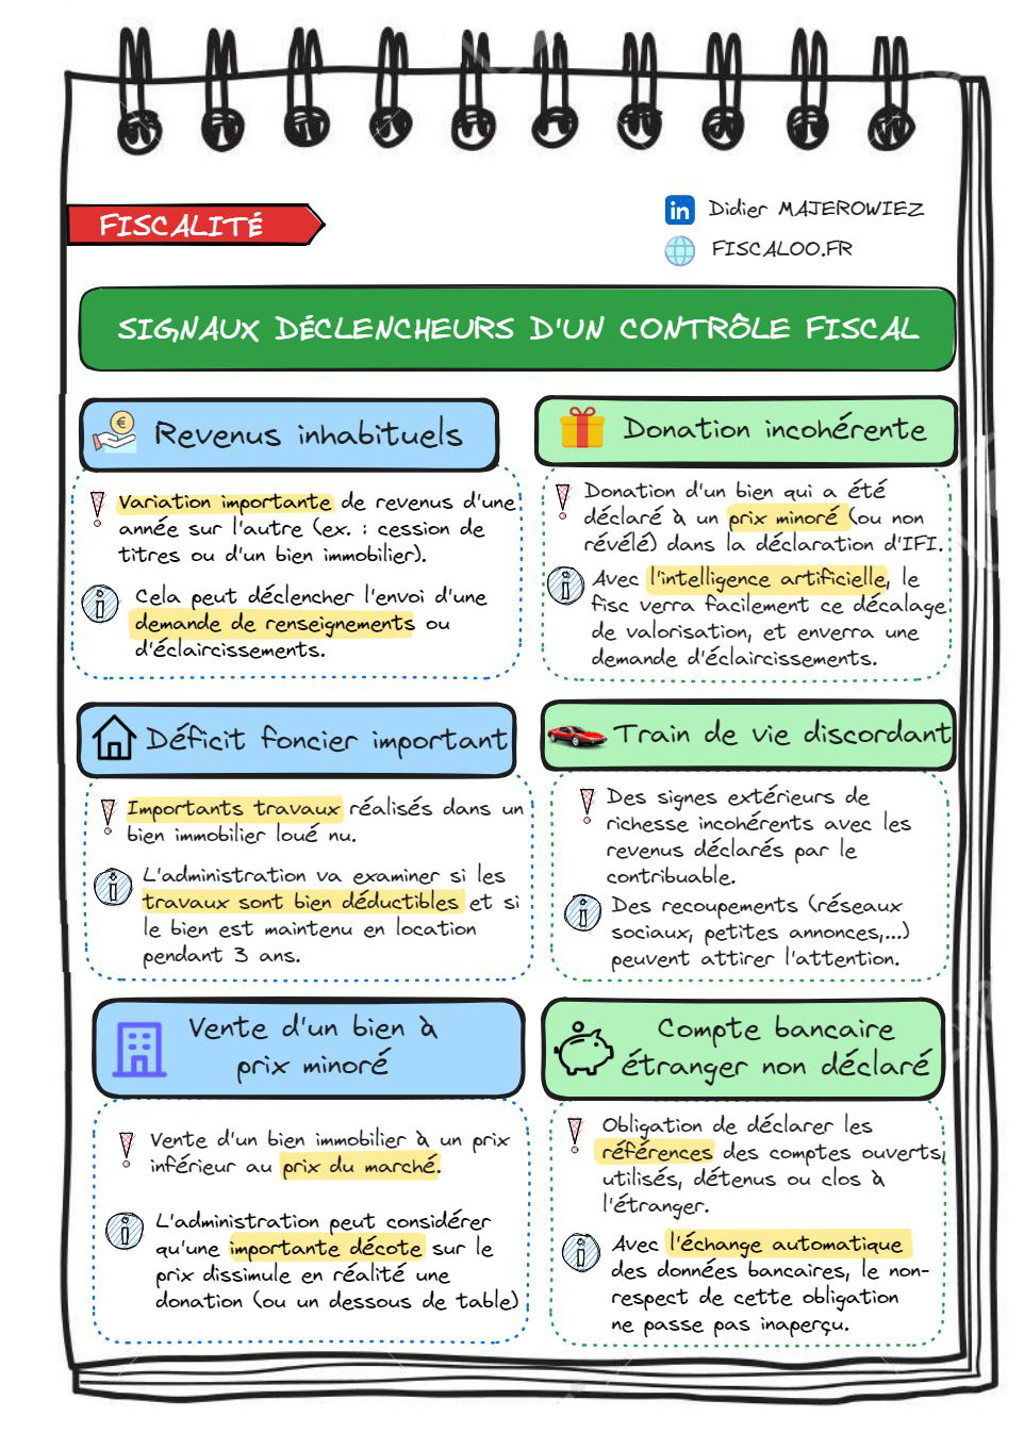 FISCALITÉ
Didier MAJEROWIEZ
FISCALOO.FR
SIGNAUX DÉCLENCHEURS D'UN CONTRÔLE FISCAL
Revenus inhabituels
Variation importante de revenus d'une
année sur l'autre (ex. : cession de
titres ou d'un bien immobilier).
Cela peut déclencher l'envoi d'une
demande de renseignements ou
d'éclaircissements.
Donation incohérente
Donation d'un bien qui a été
déclaré à un prix minoré (ou non
révélé) dans la déclaration d'IFI.
Avec l'intelligence artificielle, le
fisc verra facilement ce décalage
de valorisation, et enverra une
demande d'éclaircissements.
Déficit foncier important
Importants travaux réalisés dans un
bien immobilier loué nu.
L'administration va examiner si les
travaux sont bien déductibles et si
le bien est maintenu en location
pendant 3 ans.
Train de vie discordant
Des signes extérieurs de
richesse incohérents avec les
revenus déclarés par le
contribuable.
Des recoupements (réseaux
sociaux, petites annonces,...)
peuvent attirer l'attention.
Vente d'un bien à
prix minoré
Vente d'un bien immobilier à un prix
inférieur au prix du marché.
L'administration peut considérer
qu'une importante décote sur le
prix dissimule en réalité une
donation (ou un dessous de table)
Compte bancaire
étranger non déclaré
Obligation de déclarer les
références des comptes ouverts,
utilisés, détenus ou clos à
l'étranger.
Avec l'échange automatique
des données bancaires, le non-
respect de cette obligation
ne passe pas inaperçu.